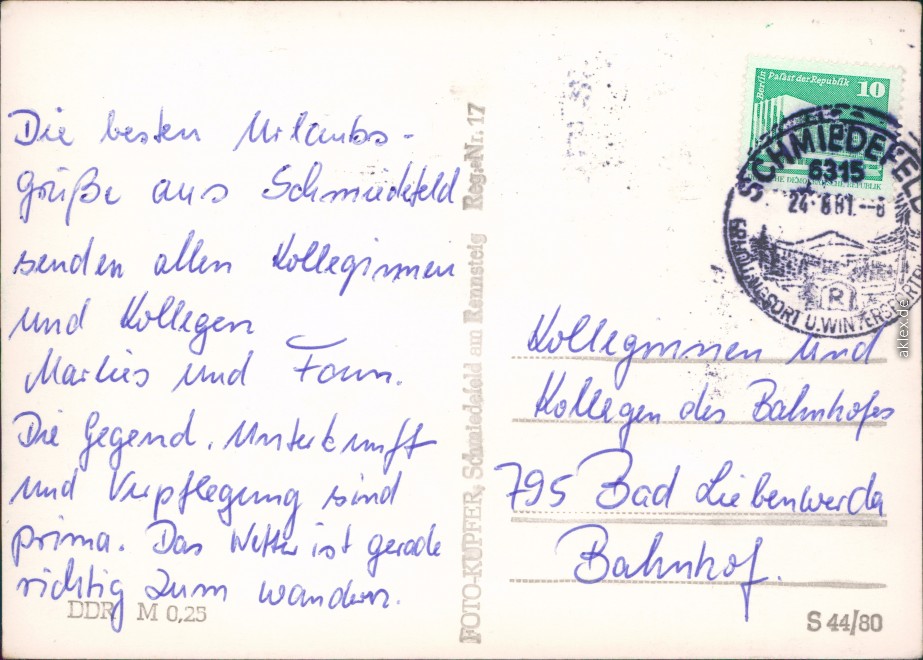 Die besten Urlaubs-
grüße aus Schmiedefeld
senden allen Kolleginnen
und Kollegen
Marlies und Fam.
Die Gegend, Unterkunft
und Verpflegung sind
prima. Das Wetter ist gerade
richtig zum wandern.
DDR M 0,25
FOTO-KUPFER, Schmiedefeld am Rennsteig Reg.-Nr. 17
Berlin Palast der Republik 10
DEMOKRATISCHE REPUBLIK
SCHMIEDEFELD
6315
24.-8.81.--8
R
ERHOLUNGSORT U.WINTERSPORT
Kolleginnen und
Kollegen des Bahnhofes
795 Bad Liebenwerda
Bahnhof.
S 44/80
aklex.de